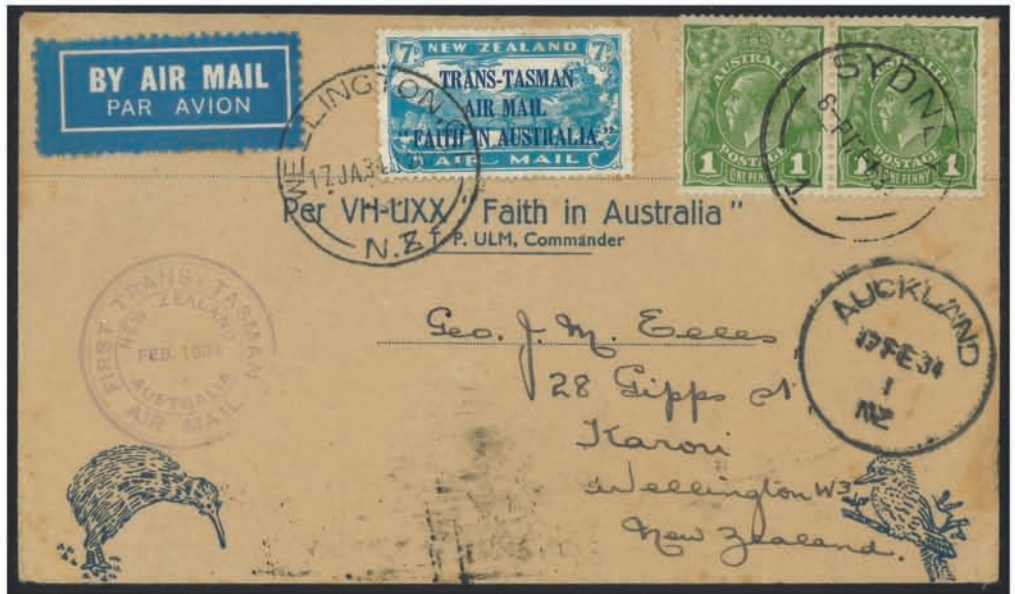 BY AIR MAIL
PAR AVION
7D NEW ZEALAND 7D
TRANS-TASMAN
AIR MAIL.
"FAITH IN AUSTRALIA."
AIR MAIL
AUSTRALIA
1 POSTAGE 1
ONE PENNY
AUSTRALIA
POSTAGE 1
ONE PENNY
SYDNEY
WELLINGTON
17 JA 34
N.Z
Per VH-UXX "Faith in Australia"
C.T.P. ULM, Commander
FIRST TRANS-TASMAN
NEW ZEALAND
FEB. 1934
AUSTRALIA
AIR MAIL
Geo. J. M. Eccles
28 Gipps st
Karori
Wellington W3
New Zealand.
AUCKLAND
17 FE 34
1
NZ